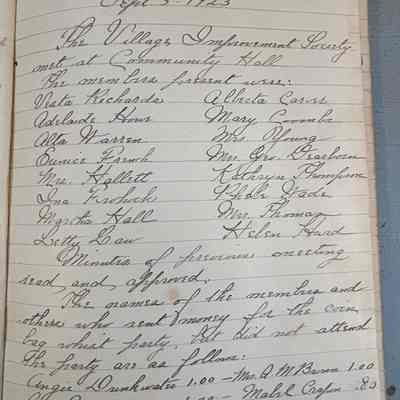 Sept 5 - 1923
The Village Improvement Society
met at Community Hall
The members present were:
Vesta Richards Alberta Carver
Adelaide Howe Mary Coombs
Alta Warren Mrs. Young
Eunice French Mrs. Geo. Dearborn
Mrs. Hallett Kathryn Thompson
Ina Frohock Phebe Wade
Mertha Hall Mrs. Thomas
Letty Law Helen Hurd
Minutes of previous meeting
read and approved.
The names of the members and
others who sent money for the coin
bag whist party, but did not attend
the party are as follows:
Angie Drinkwater 1.00 - Mrs. A. M. 1.00
1.00 - Mabel .80